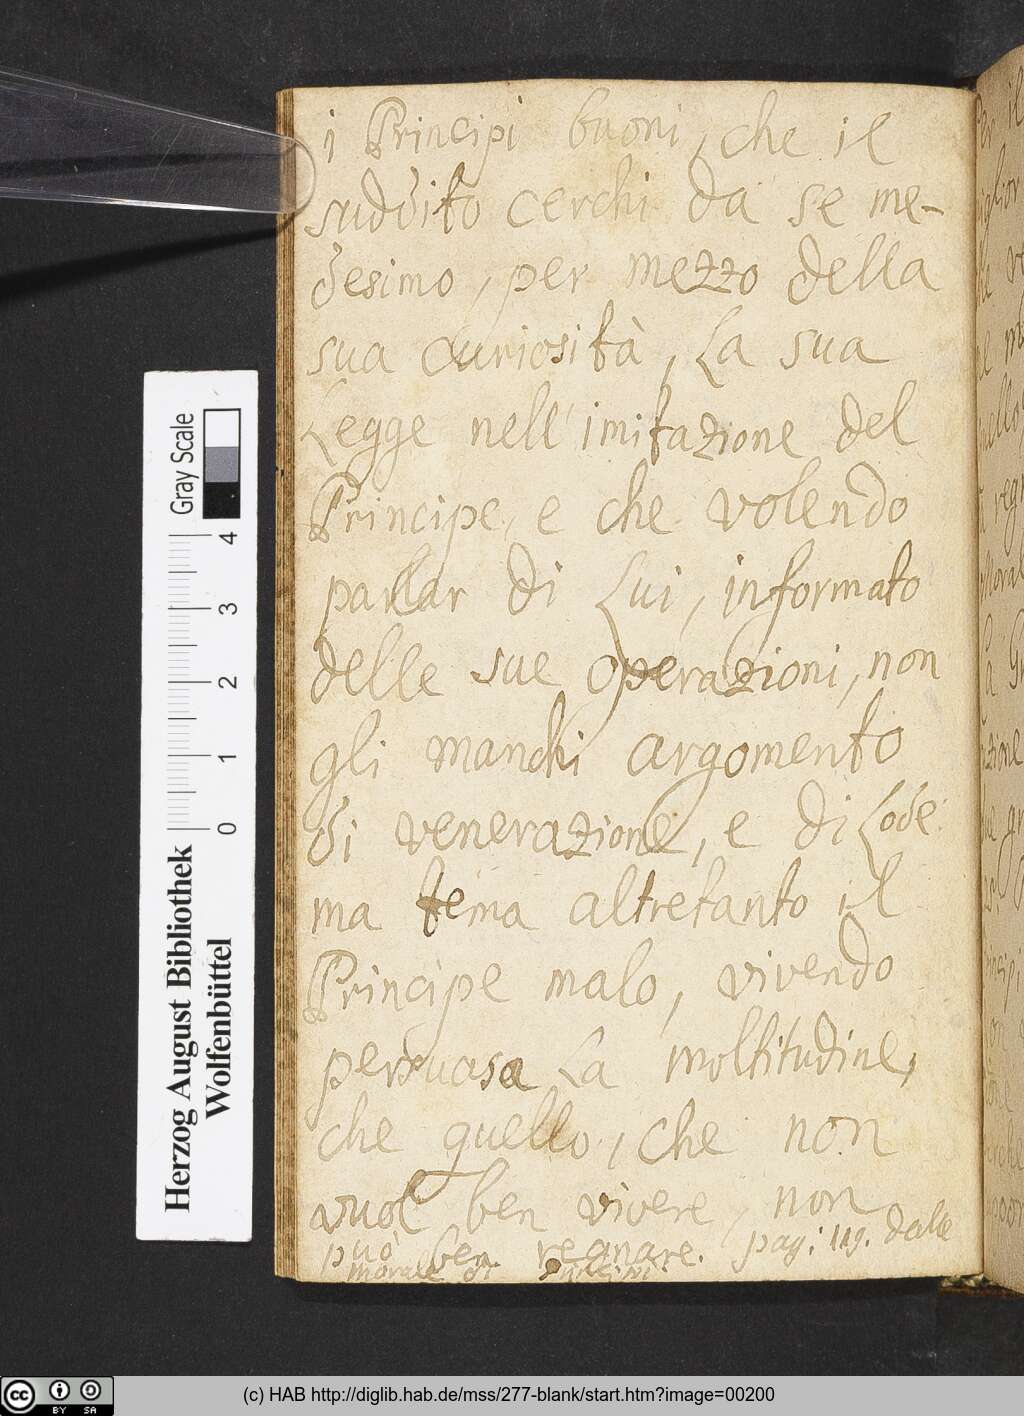 i Principi buoni, che il
suddito cerchi da se me-
desimo, per mezzo della
sua curiosità, la sua
Legge nell'imitazione del
Principe, e che volendo
parlar di Lui, informato
delle sue operazioni, non
gli manchi argomento
di venerazione, e di Lode.
ma tema altretanto il
Principe malo, vivendo
persuasa La moltitudine,
che quello, che non
vuol ben vivere, non
può ben regnare. pag: 119. dalle
morale di
Herzog August Bibliothek
Wolfenbüttel
0 1 2 3 4
Gray Scale
cc BY SA
(c) HAB http://diglib.hab.de/mss/277-blank/start.htm?image=00200